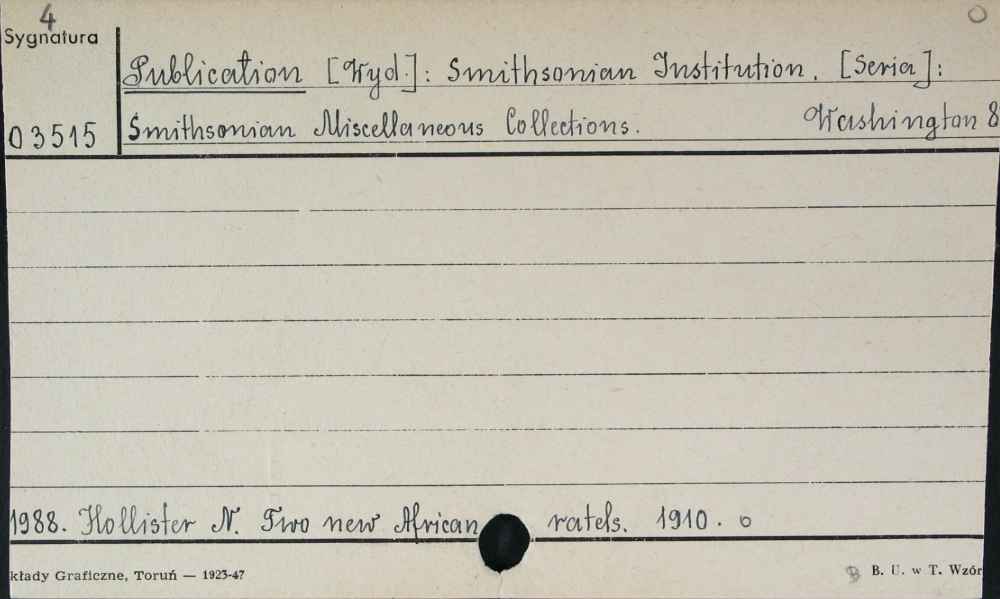 4
Sygnatura
Publication [Wyd.]: Smithsonian Institution. [Seria]:
03515 Smithsonian Miscellaneous Collections. Washington 8
1988. Hollister N. Two new African ratels. 1910. o
kłady Graficzne, Toruń — 1923-47
B. U. w T. Wzór